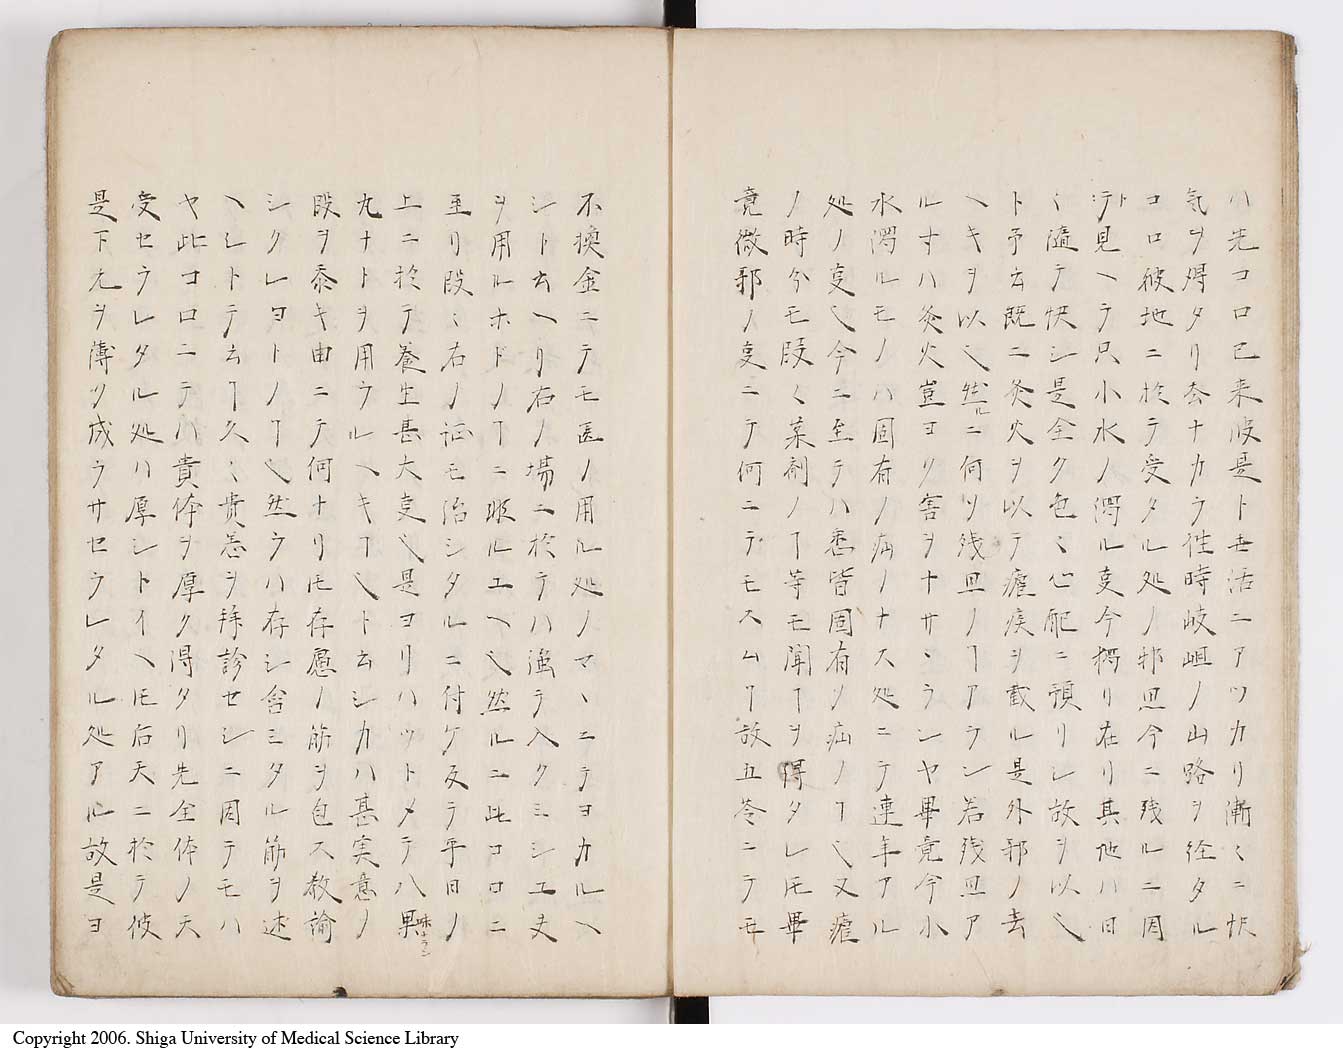 ハ先コロ已来彼是ト世活ニアツカリ漸々ニ快
気ヲ得タリ然ナカラ往時岐岨ノ山路ヲ経タル
コロ彼地ニ於テ受タル処ノ邪思今ニ残ルニ因
テト見ヘテ只小水ノ渋ル事今猶リ在リ其他ハ日
々随テ快シ是全ク色々心配ニ預リシ故ヲ以也
ト予云既ニ灸火ヲ以テ瘧疾ヲ截ル是外邪ノ去
ヘキヲ以也然ルニ何ソ残思ノヿアラン若残思ア
ルすハ灸火豈ヨク害ヲナサヽランヤ畢竟今小
水渋ルモノハ固有ノ疝ノナス処ニテ連年アル
処ノ事也今ニ至テハ悉皆固有ノ疝ノヿ也又瘧
ノ時分モ段々薬剤ノヿ等モ聞ヿヲ得タレ𪜈畢
竟微邪ノ事ニテ何ニテモスムヿ故五苓ニテモ
不換金ニテモ医ノ用ル処ノマヽニテヨカルヘ
シト云ヘリ右ノ場ニ於テハ強テ入クミシ工夫
ヲ用ルホドノヿニ非ルユヘ也然ルニ此コロニ
至リ段々右ノ証モ治シタルニ付ケ反テ平日ノ
上ニ於テ養生甚大事也是ヨリハツトメテ八味
丸ナトヲ用ウルヘキヿ也ト云シカハ甚実意ノ
段ヲ忝キ由ニテ何ナリ𪜈存慮ノ筋ヲ包ス教諭
シクレヨトノヿ也然ラハ存シ含ミタル筋ヲ述
ヘシトテ云ヿ久々貴恙ヲ拝診セシニ因テモハ
ヤ此コロニテハ貴体ヲ厚ク得タリ先全体ノ天
受セラレタル処ハ厚シトイヘ𪜈后天ニ於テ彼
是下元ヲ薄ク成ラサセラレタル処アル故是ヨ
Copyright 2006. Shiga University of Medical Science Library